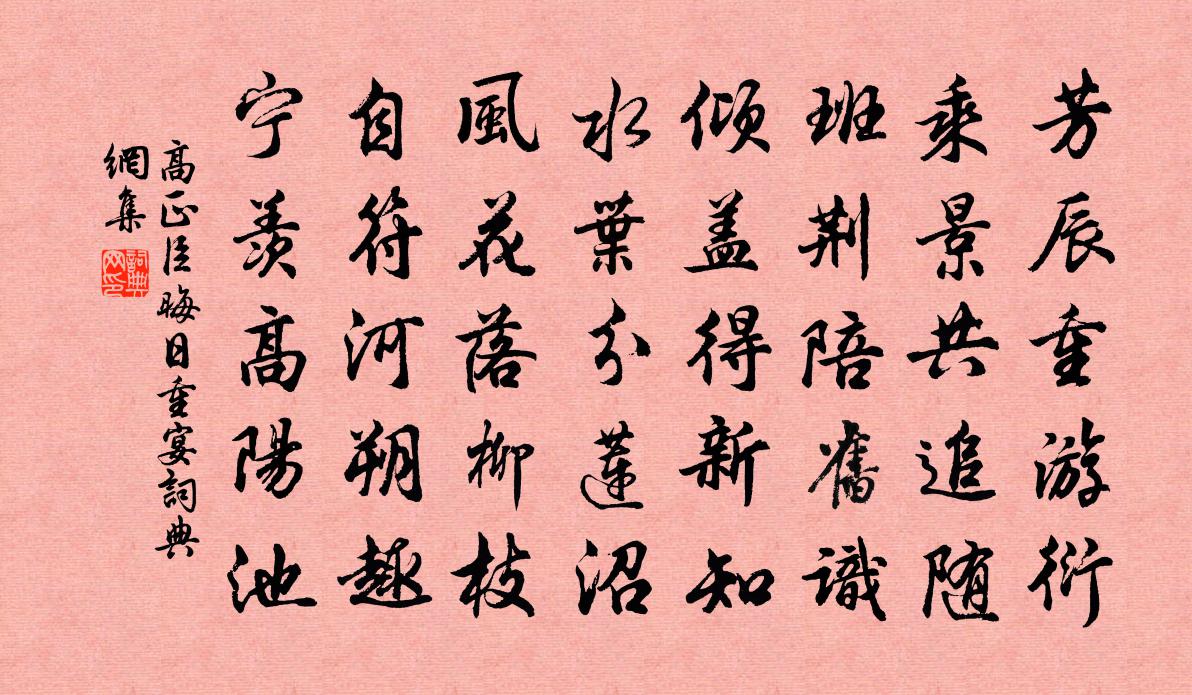 芳辰重游衍
乘景共追随
班荆陪舊識
倾盖得新知
水葉分蓮沼
風花落柳枝
自符河朔趣
宁羨高陽池
高正臣晦日重宴詞典
網集
詞典
网印